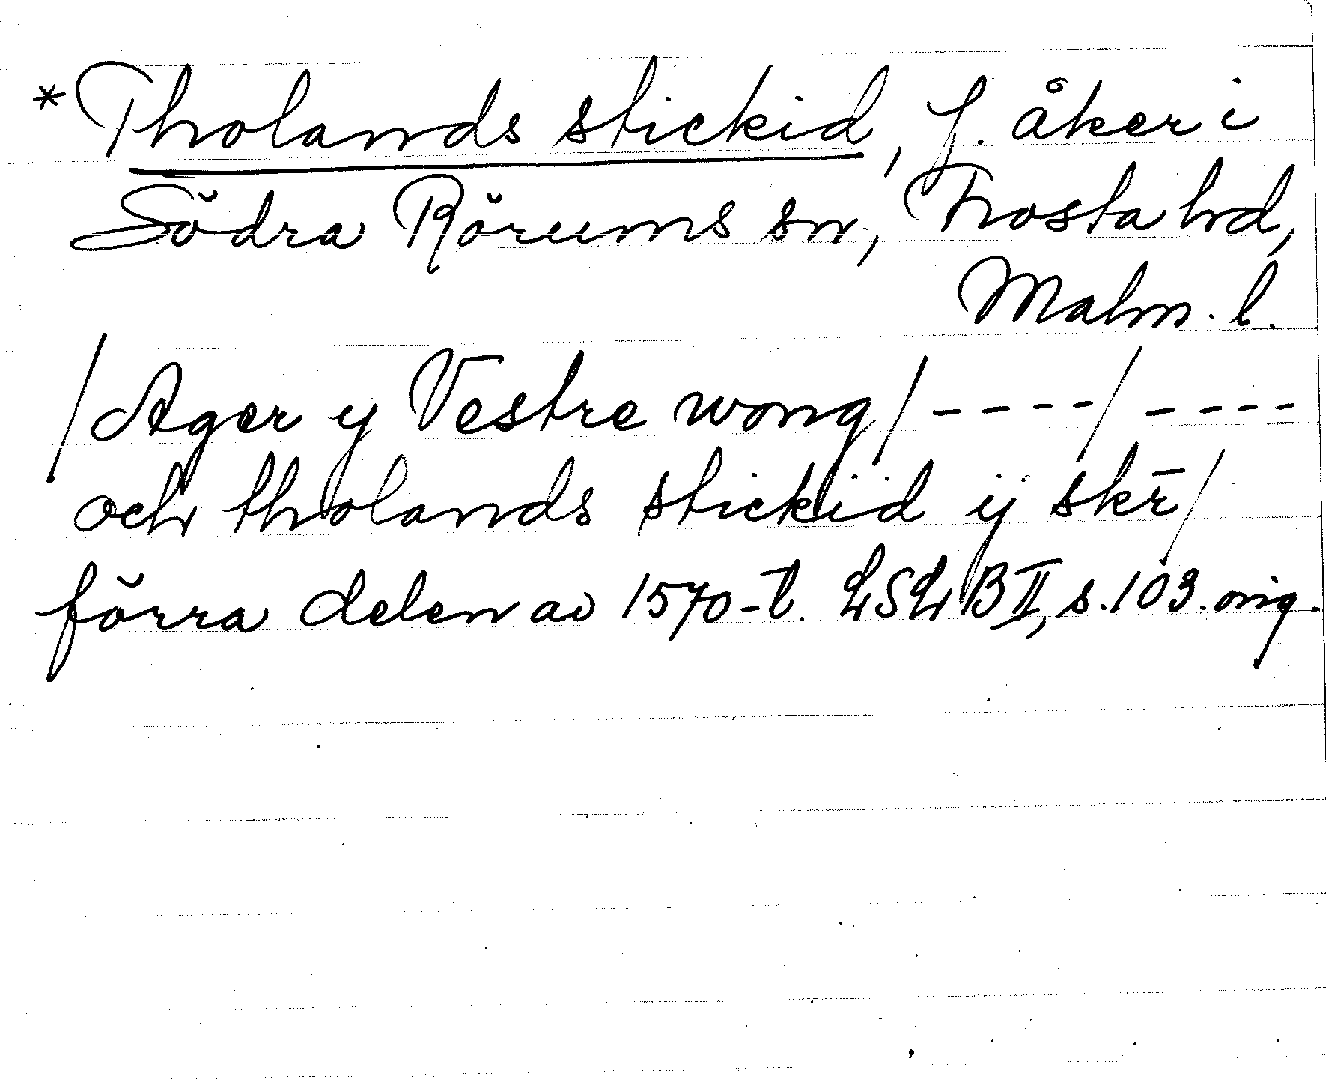 *Tholands stickid, f. åker i
Södra Rörums sn, Frosta hd,
Malm. l.
/Ager y Vestre wong/----/----
och tholands stickid ij skr̄/
förra delen av 1570-t. LSL BII, s. 103. orig.